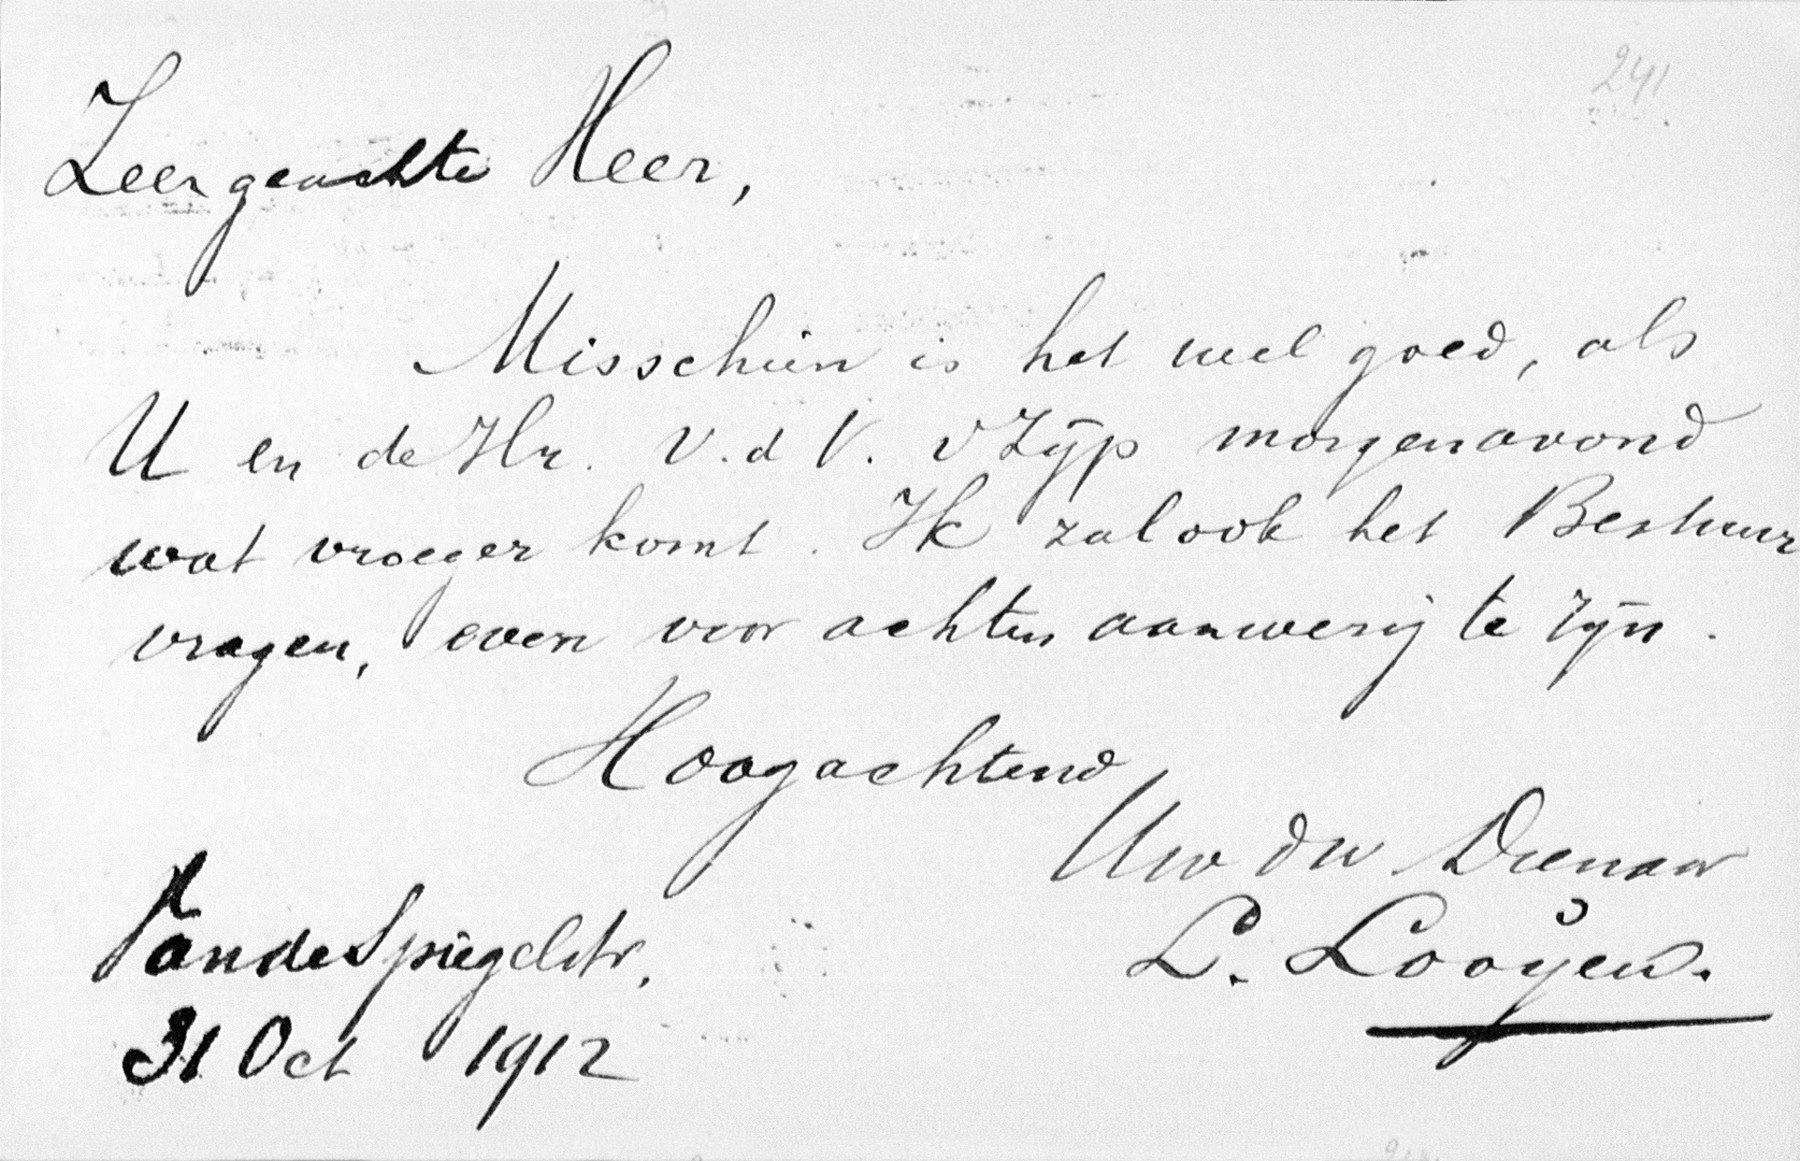 241
Zeer geachte Heer,
Misschien is het wel goed, als
U en de Hr. V. d V. v Zijp morgenavond
wat vroeger komt. Ik zal ook het Bestuur
vragen, even voor achten aanwezig te zijn.
Hoogachtend
Uw dw Dienaar
L. Looyen.
Van de Spiegelstr.
31 Oct 1912